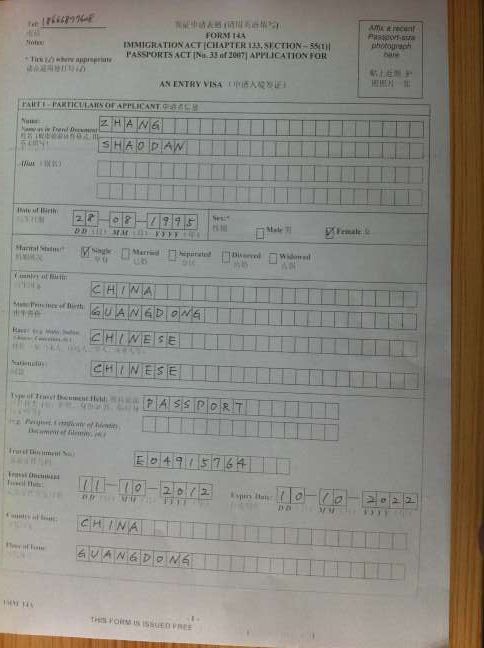 Tel:
签证申请表格 (请用英语填写)
FORM 14A
IMMIGRATION ACT [CHAPTER 133, SECTION – 55(1)]
PASSPORTS ACT [No. 33 of 2007] APPLICATION FOR
Notes:
* Tick (√) where appropriate
Affix a recent
Passport-size
photograph
here
AN ENTRY VISA (申请入境签证)
PART I - PARTICULARS OF APPLICANT 申请者信息
Name: ZHANG
Name as in Travel Document
SHAODAN
Alias
Date of Birth: 28-08-1995 Sex:* Male 男 √ Female 女
DD MM YYYY
Marital Status:* √ Single Married Separated Divorced Widowed
Country of Birth: CHINA
State/Province of Birth: GUANGDONG
Race: CHINESE
Nationality: CHINESE
Type of Travel Document Held: PASSPORT
(e.g. Passport, Certificate of Identity,
Document of Identity, etc)
Travel Document No.: E04915764
Travel Document
Issued Date: 11-10-2012 Expiry Date: 10-10-2022
DD MM YYYY DD MM YYYY
Country of Issue: CHINA
Place of Issue: GUANGDONG
IMM 14A
- 1 -
THIS FORM IS ISSUED FREE